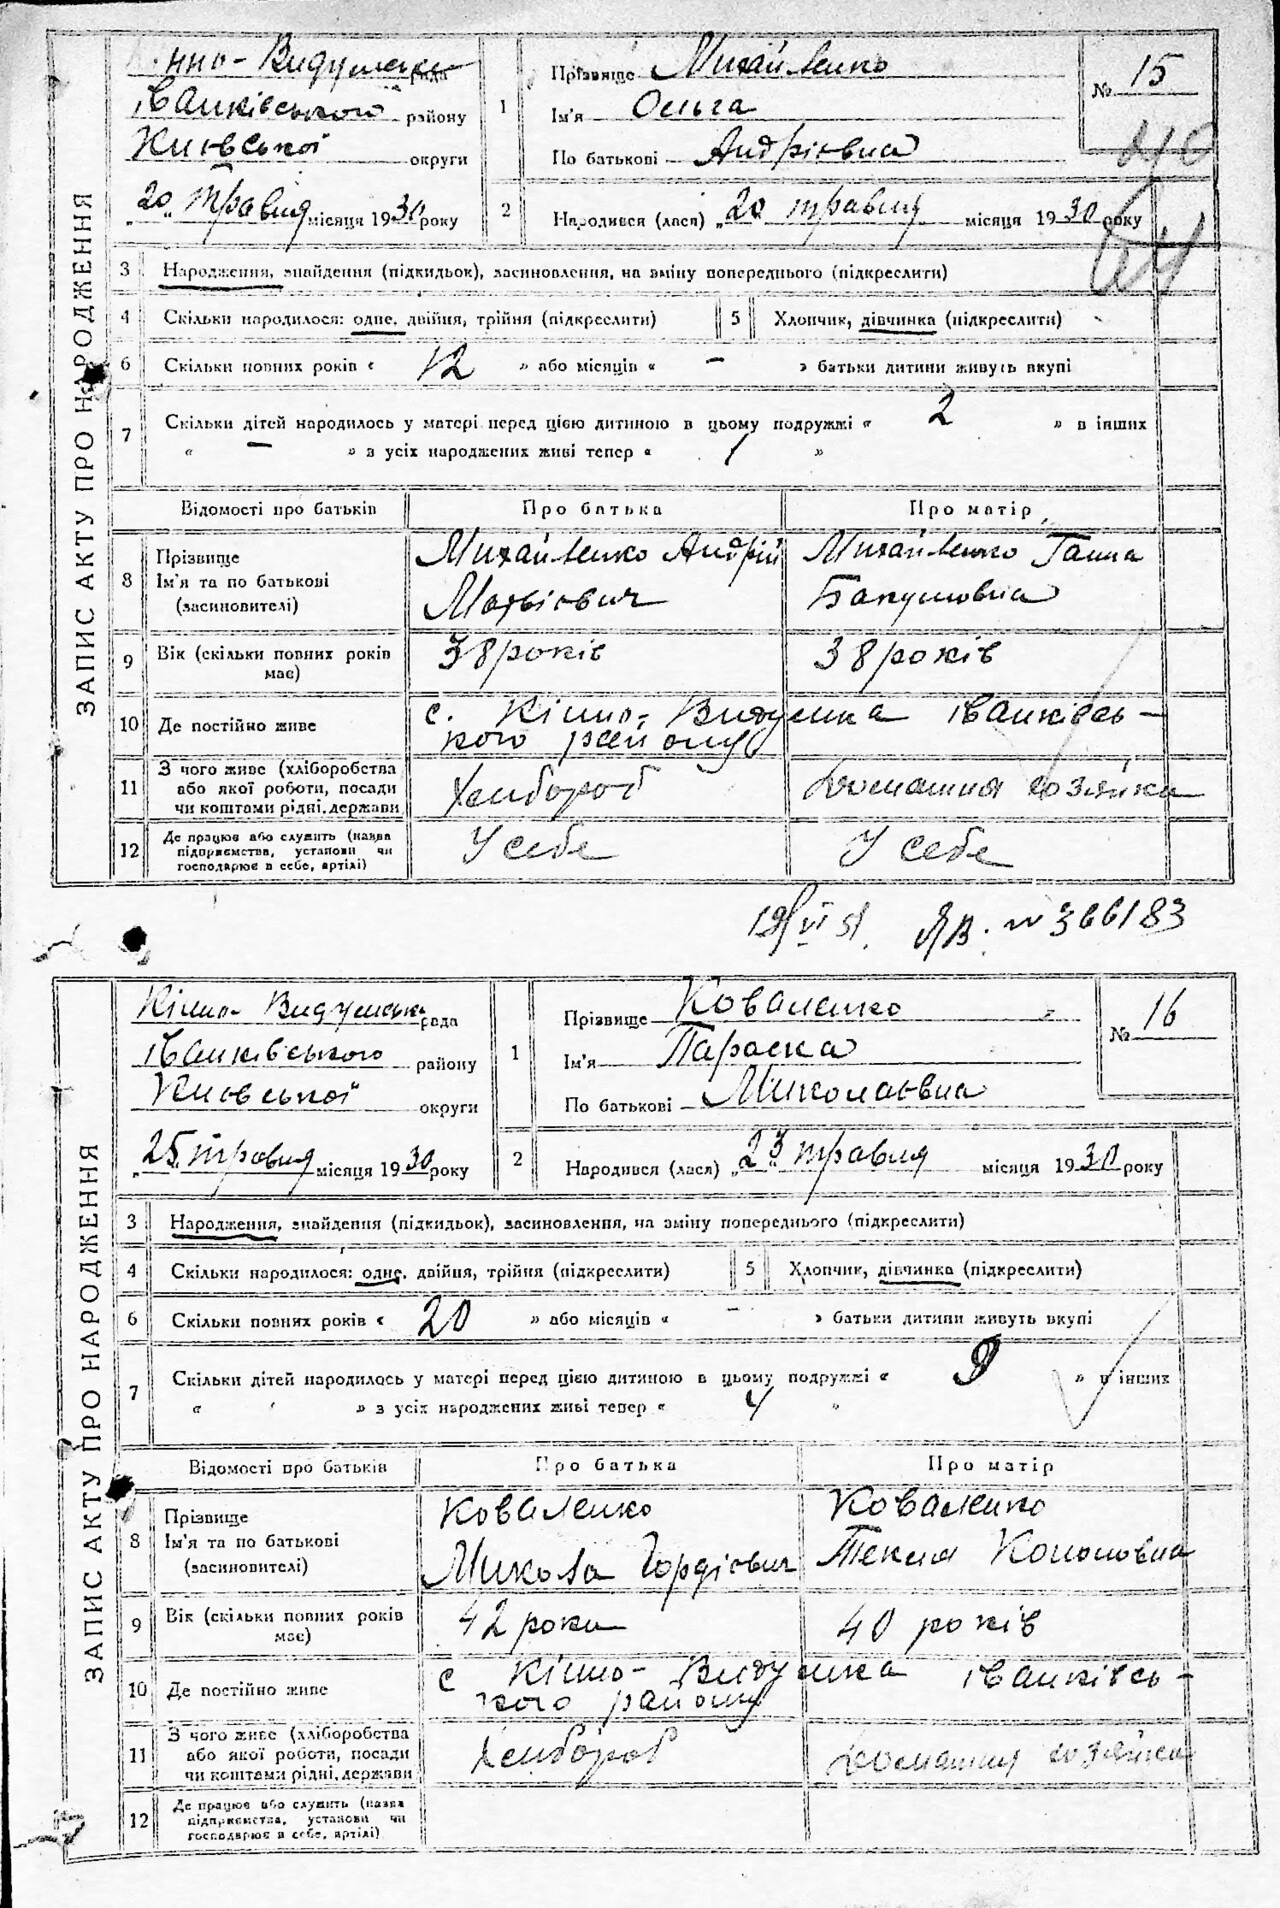 ЗАПИС АКТУ ПРО НАРОДЖЕННЯ
нно-Видумська рада
Іванківського району
Київської округи
„20" травня місяця 1930 року
1 Прізвище Михайленко
Ім'я Ольга
По батькові Андріївна
№ 15
2 Народився (лася) „20" травня місяця 1930 року
64
3 Народження, знайдення (підкидьок), засиновлення, на зміну попереднього (підкреслити)
4 Скільки народилося: одне, двійня, трійня (підкреслити) 5 Хлопчик, дівчинка (підкреслити)
6 Скільки повних років « 12 » або місяців « – » батьки дитини живуть вкупі
7 Скільки дітей народилось у матері перед цією дитиною в цьому подружжі « 2 » в інших
« – » з усіх народжених живі тепер « 1 »
Відомості про батьків Про батька Про матір
8 Прізвище Ім'я та по батькові (засиновителі)
Михайленко Андрій
Матвієвич
Михайленко Ганна
9 Вік (скільки повних років має) 38 років 38 років
10 Де постійно живе с. Кінно-Видумка Іванківсь-
кого району
11 З чого живе (хліборобства або якої роботи, посади чи коштами рідні, держави) Хлибороб Домашня хозяйка
12 Де працює або служить (назва підприємства, установи чи господарює в себе, артілі) У себе У себе
ЯВ. № 366183
ЗАПИС АКТУ ПРО НАРОДЖЕННЯ
Кінно-Видумська рада
Іванківського району
Київської округи
„25" травня місяця 1930 року
1 Прізвище Коваленко
Ім'я Параска
По батькові Миколаївна
№ 16
2 Народився (лася) „23" травня місяця 1930 року
3 Народження, знайдення (підкидьок), засиновлення, на зміну попереднього (підкреслити)
4 Скільки народилося: одне, двійня, трійня (підкреслити) 5 Хлопчик, дівчинка (підкреслити)
6 Скільки повних років « 20 » або місяців « – » батьки дитини живуть вкупі
7 Скільки дітей народилось у матері перед цією дитиною в цьому подружжі « 9 » в інших
« » з усіх народжених живі тепер « 4 »
Відомості про батьків Про батька Про матір
8 Прізвище Ім'я та по батькові (засиновителі)
Коваленко
Микола Гордієвич
Коваленко
Текля Кононовна
9 Вік (скільки повних років має) 42 роки 40 років
10 Де постійно живе с Кінно-Видумка Іванківсь-
кого району
11 З чого живе (хліборобства або якої роботи, посади чи коштами рідні, держави Хлибороб Домашня хозяйка
12 Де працює або служить (назва підприємства, установи чи господарює в себе, артілі)